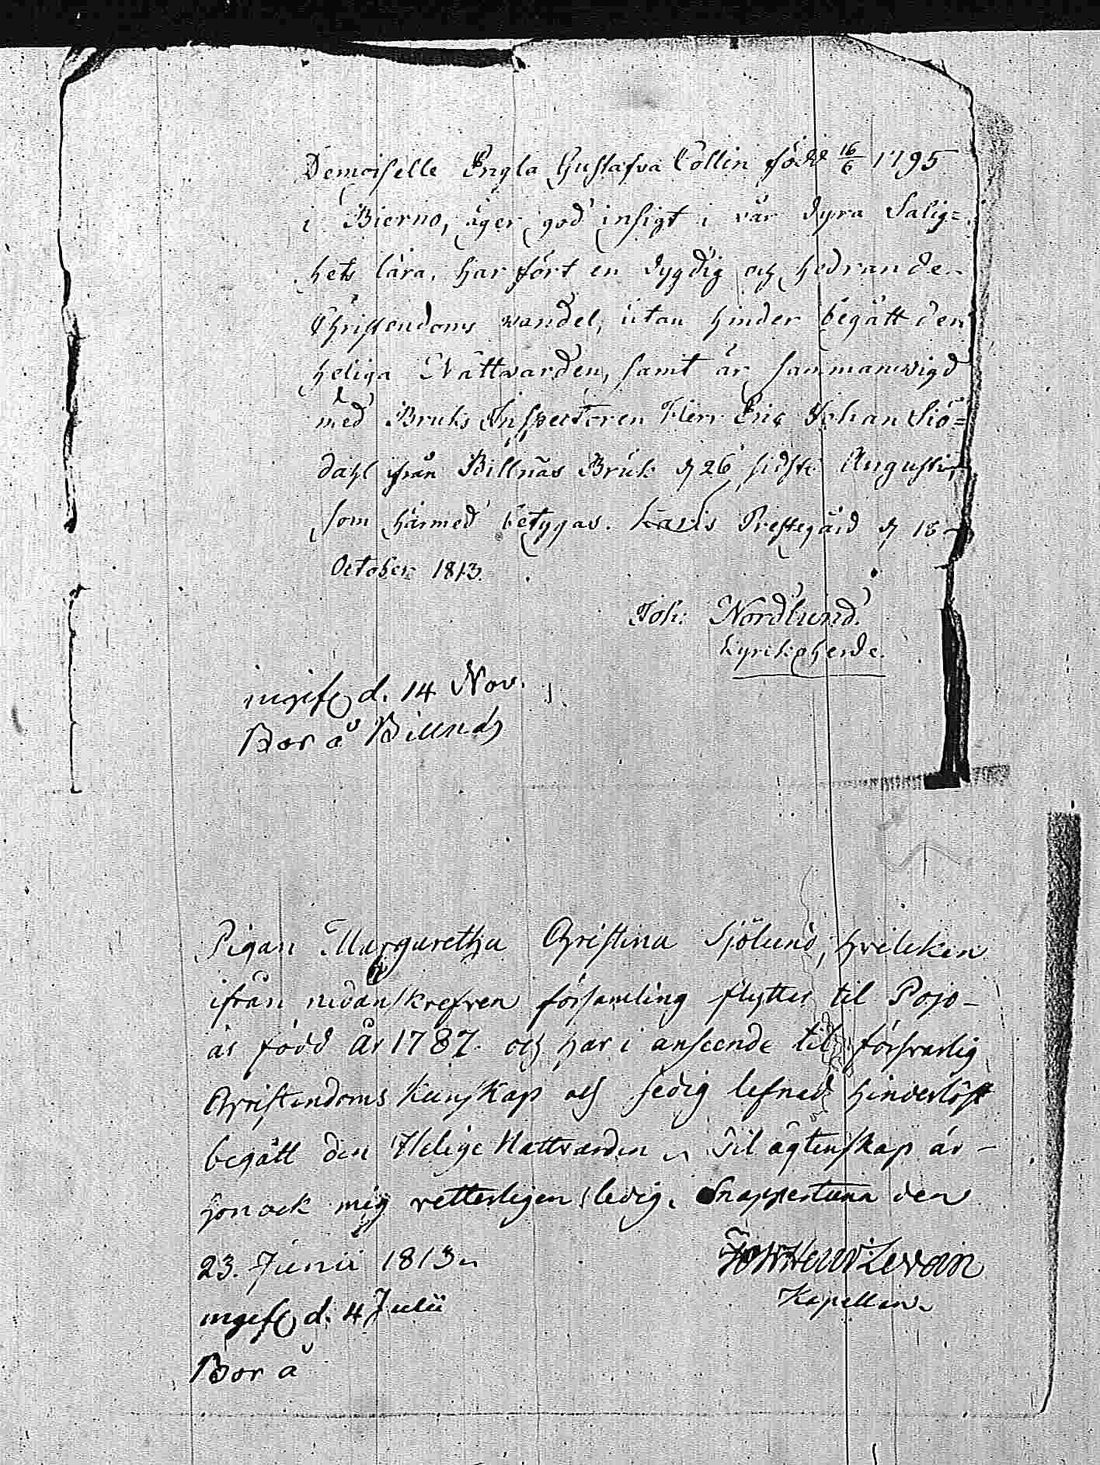 Demoiselle Engla Gustafva Collin född 16/6 1795
i Bierno, äger god insigt i vår dyra Salig=
hets lära, har fört en dygdig och hedrande
Christendoms vandel, utan hinder begått den
heliga Nattvarden, samt är sammanvigd
med Bruks Inspectoren Herr Eric Johan Siö=
dahl från Billnäs Bruk d 26 sidste Augusti,
som härmed betygas. Karis Prestegård d 18
October 1813.
Joh. Nordlund.
Kyrckoherde.
ingifv d. 14 Nov.
Bor å Billnäs
Pigan Margaretha Christina Sjölund, hvilcken
ifrån nedanskrefven församling flytter til Pojo
är född År 1787. och har i anseende til försvarlig
Christendoms Kunskap och sedig lefnad hinderlöst
begått den Helige Nattvarden. Til ägtenskap är
hon ock mig vetterligen ledig. Snappertuna den
23. Junii 1813.
Levan
Kapellan.
ingifv d. 4 Julii
Bor å